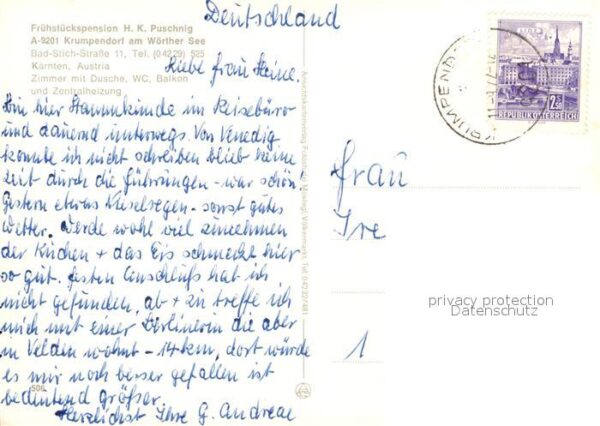 Deutschland
Frühstückspension H. K. Puschnig
A-9201 Krumpendorf am Wörther See
Bad-Stich-Straße 11, Tel. (04229) 525
Kärnten, Austria
Zimmer mit Dusche, WC, Balkon
und Zentralheizung
Liebe Frau Heine.
Bin hier Stammkunde im Reisebüro
und dauernd unterwegs Von Venedig
konnte ich nicht schreiben blieb keine
Zeit durch die Führungen - war schön
Gestern etwas Nieselregen - sonst gutes
Wetter. Werde wohl viel zunehmen
der Kuchen + das Eis schmeckt hier
so gut. festen Anschluß hat ich
nicht gefunden, ab + zu treffe ich
mich mit einer Berlinerin die aber
in Velden wohnt - 14 km, dort würde
es mir noch besser gefallen ist
bedeutend größer
Herzlichst Ihre G. Andreae
506
KRUMPEND
2.50
REPUBLIK ÖSTERREICH
Frau
Ire
1
privacy protection
Datenschutz